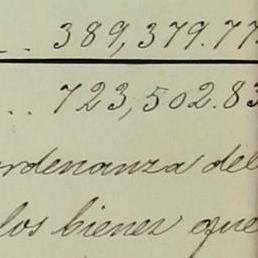 389,379.77
723,502.83
ordenanza del
los bienes que